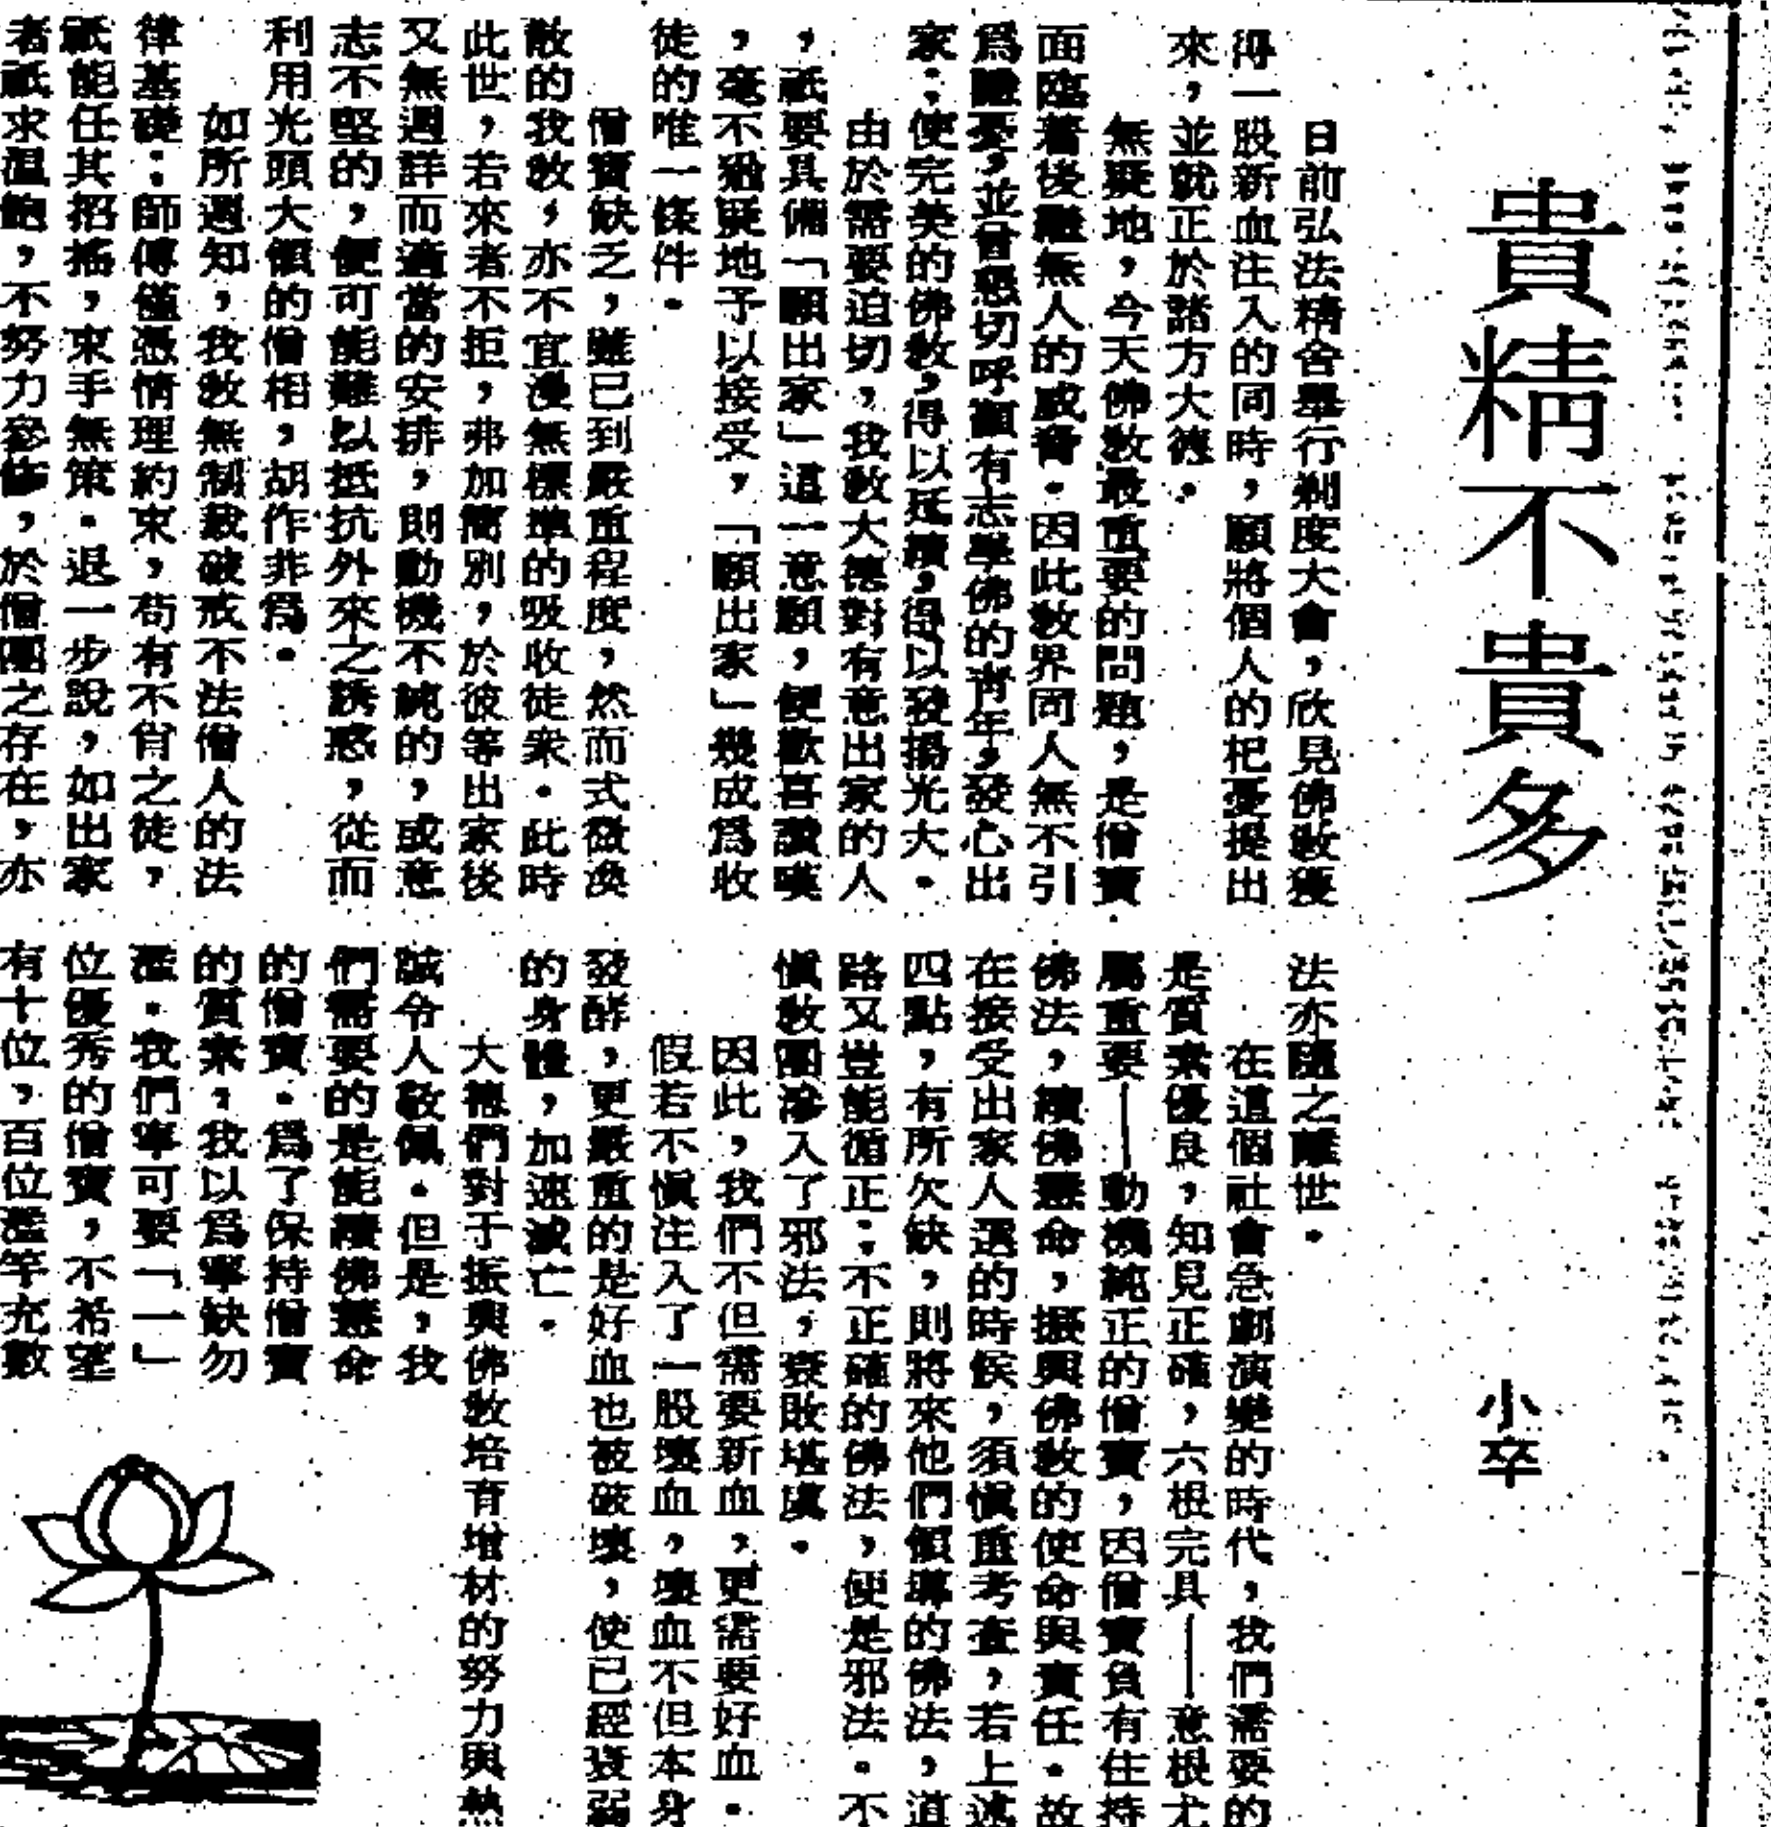 貴精不貴多
小卒
日前弘法精舍舉行剃度大會，欣見佛教獲
得一股新血注入的同時，願將個人的杞憂提出
來，並就正於諸方大德。
無疑地，今天佛教最重要的問題，是僧寶
面臨着後繼無人的威脅。因此教界同人無不引
爲隱憂，並曾懇切呼籲有志學佛的青年，發心出
家；使完美的佛教，得以延續，得以發揚光大。
由於需要迫切，我教大德對有意出家的人
，祇要具備「願出家」這一意願，便歡喜讚嘆
，毫不猶疑地予以接受，「願出家」幾成爲收
徒的唯一條件。
僧寶缺乏，雖已到嚴重程度，然而式微渙
散的我教，亦不宜漫無標準的吸收徒衆。此時
此世，若來者不拒，弗加簡別，於彼等出家後
又無週詳而適當的安排，則動機不純的，或意
志不堅的，便可能難以抵抗外來之誘惑，從而
利用光頭大領的僧相，胡作非爲。
如所週知，我教無制裁破戒不法僧人的法
律基礎；師傅僅憑情理約束，苟有不肖之徒，
祇能任其招搖，束手無策。退一步說，如出家
者祇求溫飽，不努力參修，於僧團之存在，亦
法亦隨之離世。
在這個社會急劇演變的時代，我們需要的
是質素優良，知見正確，六根完具——意根尤
屬重要——動機純正的僧寶，因僧寶負有住持
佛法，續佛慧命，振興佛教的使命與責任。故
在接受出家人選的時候，須慎重考查，若上述
四點，有所欠缺，則將來他們領導的佛法，道
路又豈能循正；不正確的佛法，便是邪法。不
慎教團滲入了邪法，衰敗堪虞。
因此，我們不但需要新血，更需要好血。
假若不慎注入了一股壞血，壞血不但本身
發酵，更嚴重的是好血也被破壞，使已經衰弱
的身體，加速滅亡。
大德們對于振興佛教培育增材的努力與熱
誠令人敬佩。但是，我
們需要的是能續佛慧命
的僧寶。爲了保持僧寶
的質素，我以爲寧缺勿
濫。我們寧可要「一」
位優秀的僧寶，不希望
有十位，百位濫竽充數